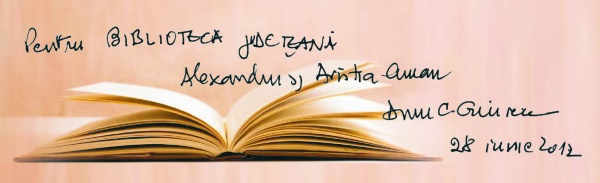 Pentru BIBLIOTECA JUDEŢEANĂ
Alexandru și Aristia Aman
28 iunie 2012